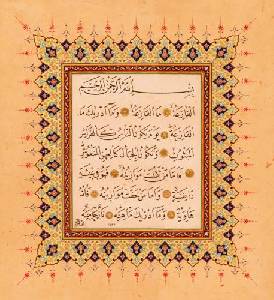 بِسْمِ اللهِ الرَّحْمٰنِ الرَّحِيمِ
اَلْقَارِعَةُ مَا الْقَارِعَةُ وَمَا اَدْرٰيكَ مَا
الْقَارِعَةُ يَوْمَ يَكُونُ النَّاسُ كَالْفَرَاشِ
الْمَبْثُوثِ وَتَكُونُ الْجِبَالُ كَالْعِهْنِ الْمَنْفُوشِ
فَاَمَّا مَنْ ثَقُلَتْ مَوَازِينُهُ فَهُوَ فِي عِيشَةٍ
رَاضِيَةٍ وَاَمَّا مَنْ خَفَّتْ مَوَازِينُهُ فَاُمُّهُ
هَاوِيَةٌ وَمَا اَدْرٰيكَ مَاهِيَهْ نَارٌ حَامِيَةٌ